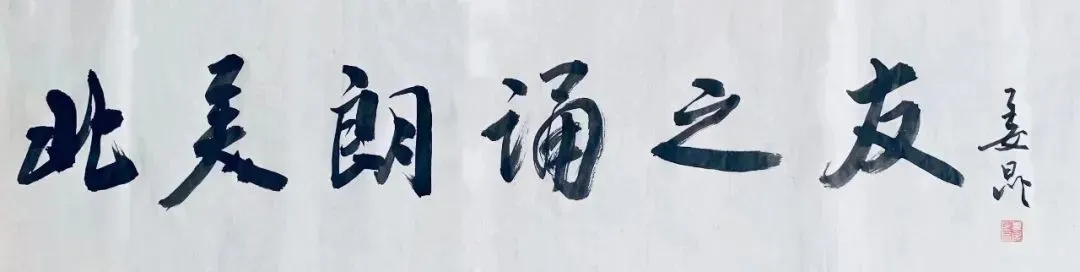 北美朗诵之友
姜昆